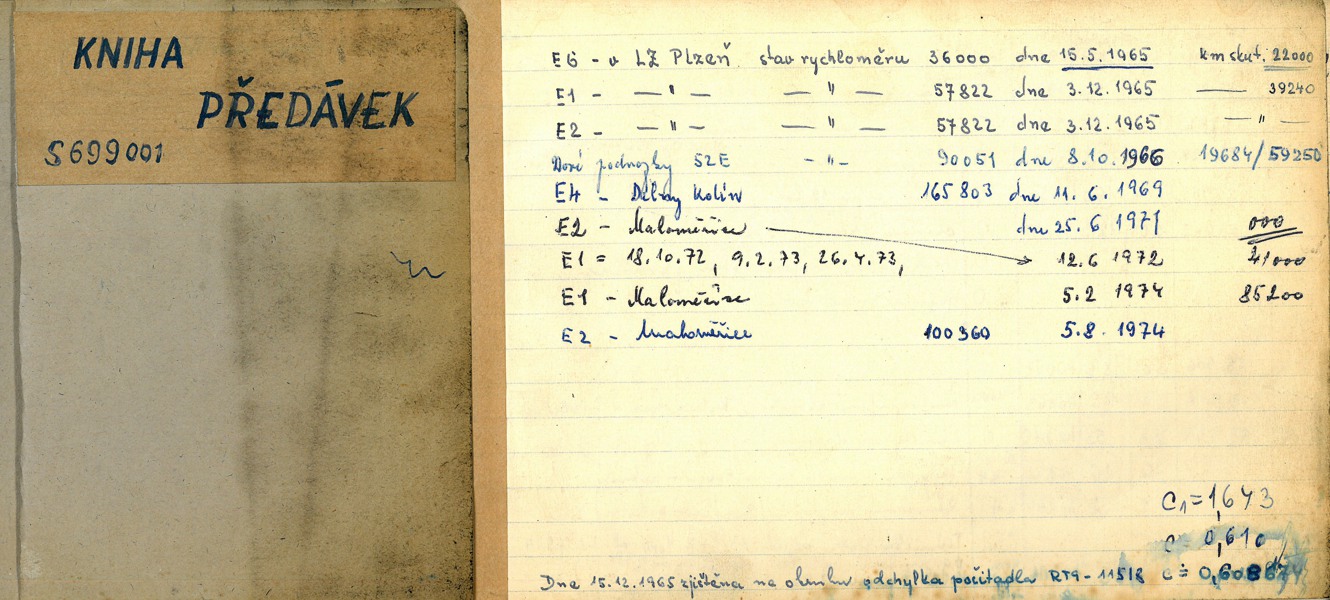 KNIHA
PŘEDÁVEK
S699001
E6 - v LZ Plzeň stav rychloměru 36000 dne 15.5.1965 km skut. 22000
E1 - — " — — " — 57822 dne 3.12.1965 — 39240
E2 - — " — — " — 57822 dne 3.12.1965 — " —
Nové podnozky SZE - " - 90051 dne 8.10.1966 19684/59250
E4 - Dílny Kolín 165803 dne 11.6.1969
E2 - Maloměřice dne 25.6 1971 000
E1 = 18.10.72, 9.2.73, 26.4.73, 12.6 1972 41000
E1 - Maloměřice 5.2 1974 85200
E2 - Maloměřice 100360 5.8.1974
C1=1,643
c 0,610
Dne 15.12.1965 zjištěna na okruhu odchylka počítadla RT9-11518 c ≐ 0,608